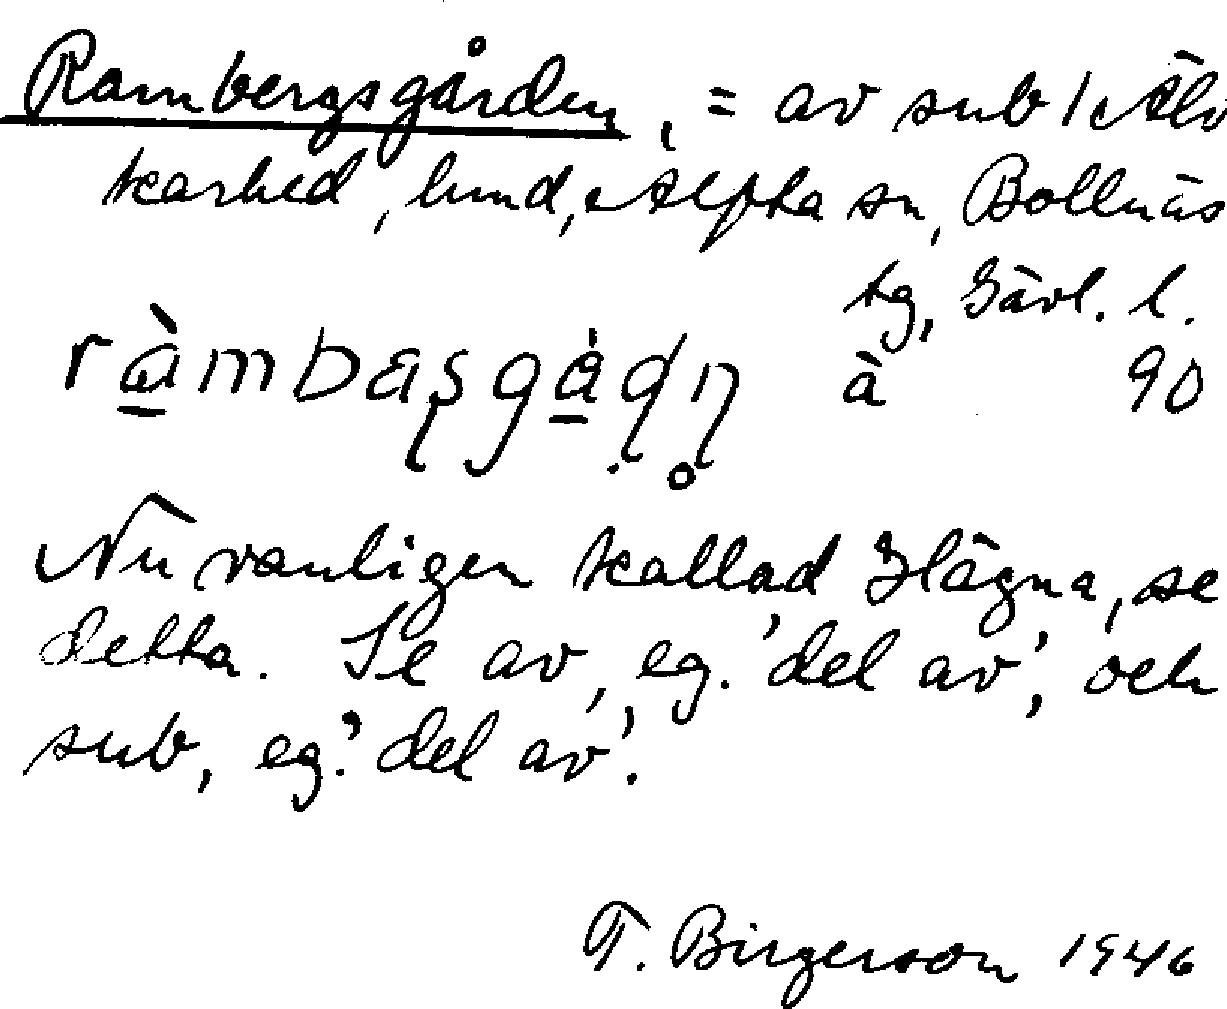 Rambergsgården, = av sub 1 Älv
karhed, lund, Alfta sn, Bollnäs
tg, Gävl. l.
ràmbaşgàḍn̥ à 90
Nu vanligen kallad Hägna, se
detta. Se av, eg. 'del av', och
sub, eg. 'del av'.
T. Birgerson 1946